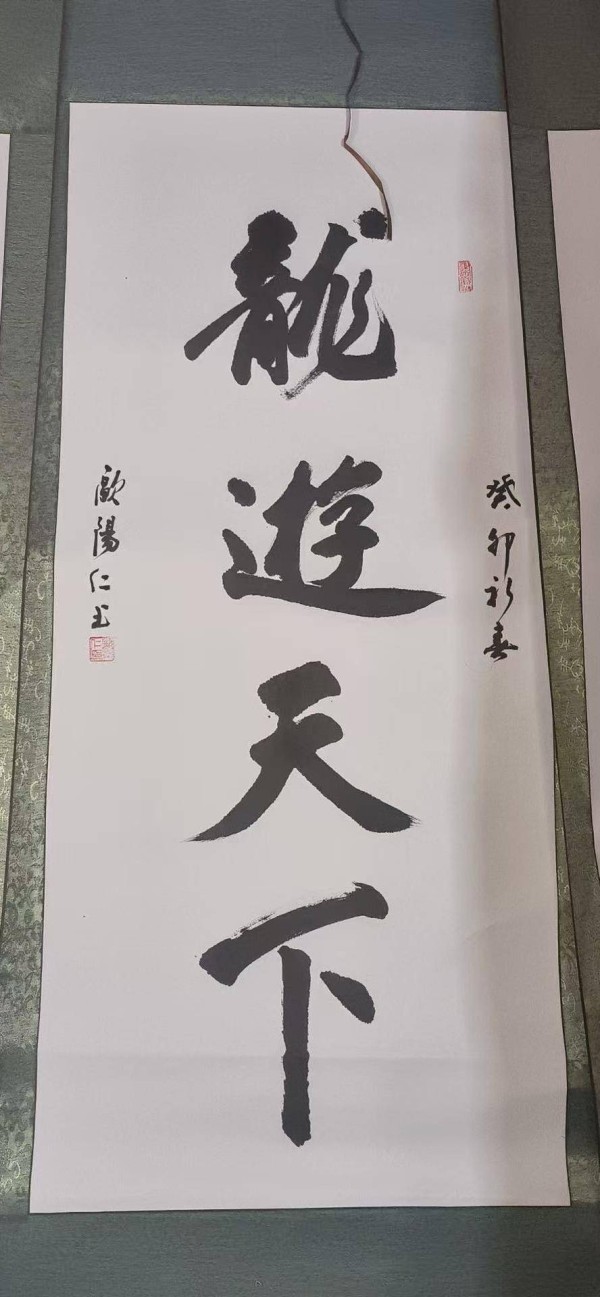 癸卯初春
龍遊天下
歐陽仁书